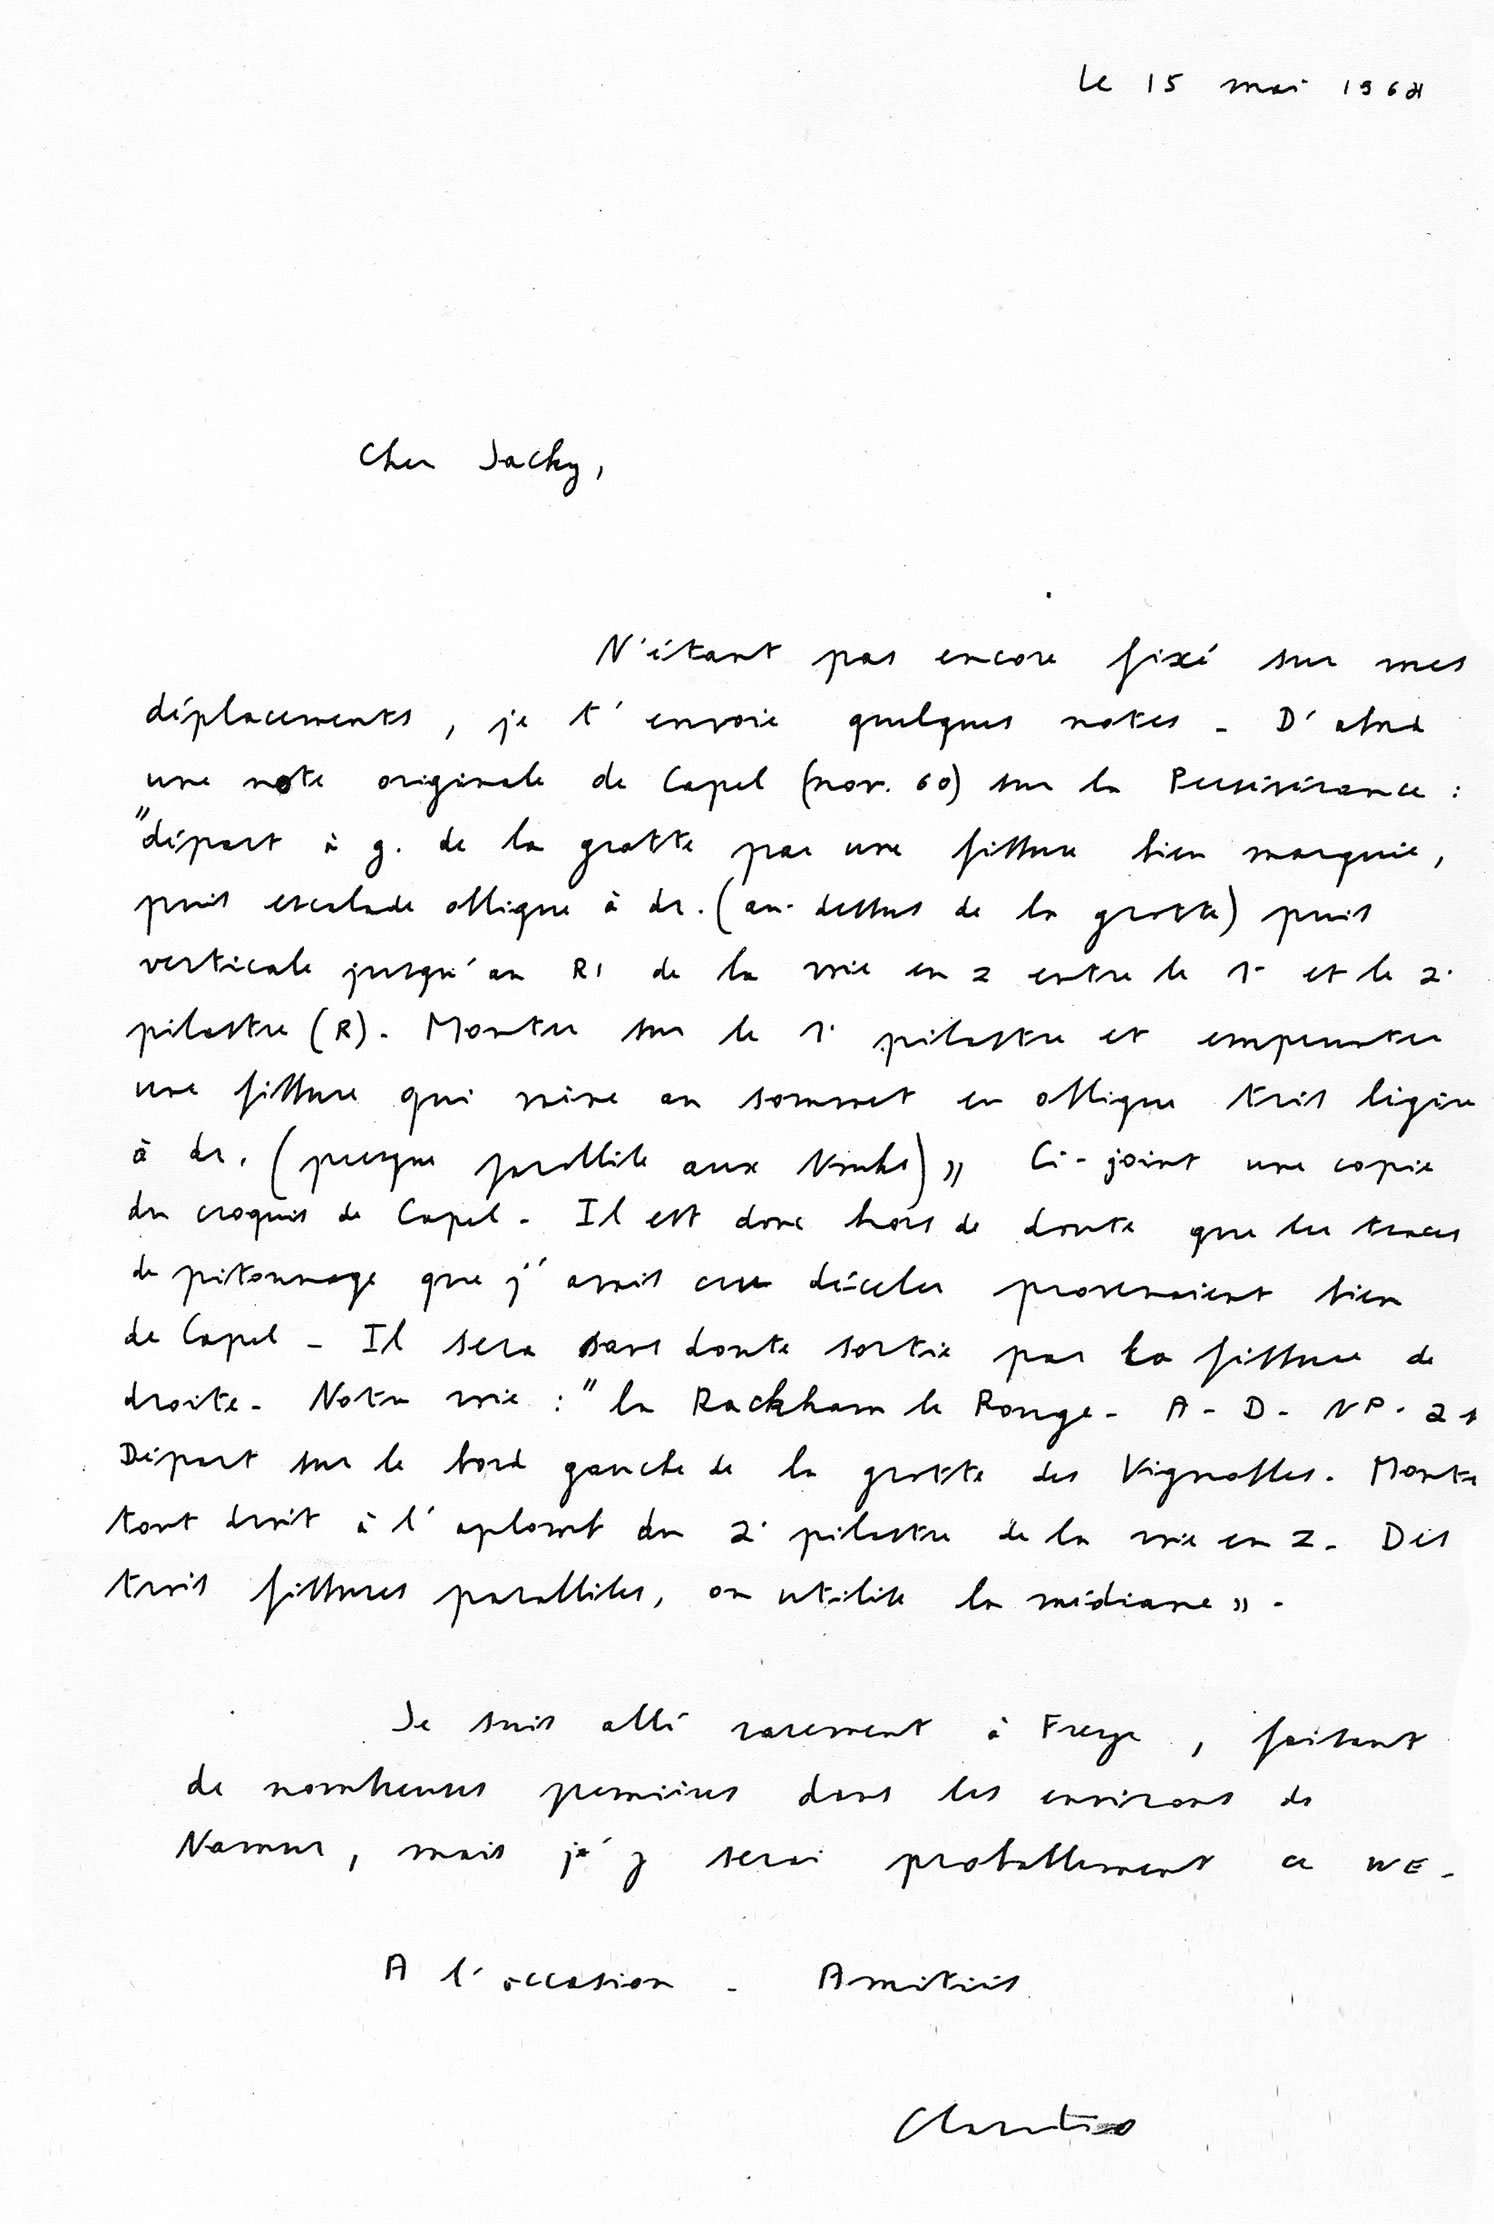 Le 15 mai 196
Cher Jacky,
N'étant pas encore fixé sur mes
déplacements, je t'envoie quelques notes - D'abord
une note originale de Capel (nov. 60) sur la Persévérance :
"départ à g. de la grotte par une fissure bien marquée,
puis escalade oblique à dr. (au-dessus de la grotte) puis
verticale jusqu'au R1 de la voie en Z entre le 1° et le 2°
pilastre (R). Monter sur le 1° pilastre et emprunter
une fissure qui mène au sommet en oblique très légère
à dr. (presque parallèle aux Nimbes)" Ci-joint une copie
du croquis de Capel - Il est donc hors de doute que les traces
de pitonnage que j'avais cru déceler provenaient bien
de Capel - Il sera sans doute sortie par la fissure de
droite - Notre voie : "la Rackham le Rouge - A - D - NP - 21
Départ sur le bord gauche de la grotte des Vignobles. Monte
tout droit à l'aplomb du 2° pilastre de la voie en Z - Des
trois fissures parallèles, on utilise la médiane" -
Je suis allé rarement à Freyr, faisant
de nombreuses premières dans les environs de
Namur, mais j'y serai probablement ce WE -
A l'occasion - Amitiés